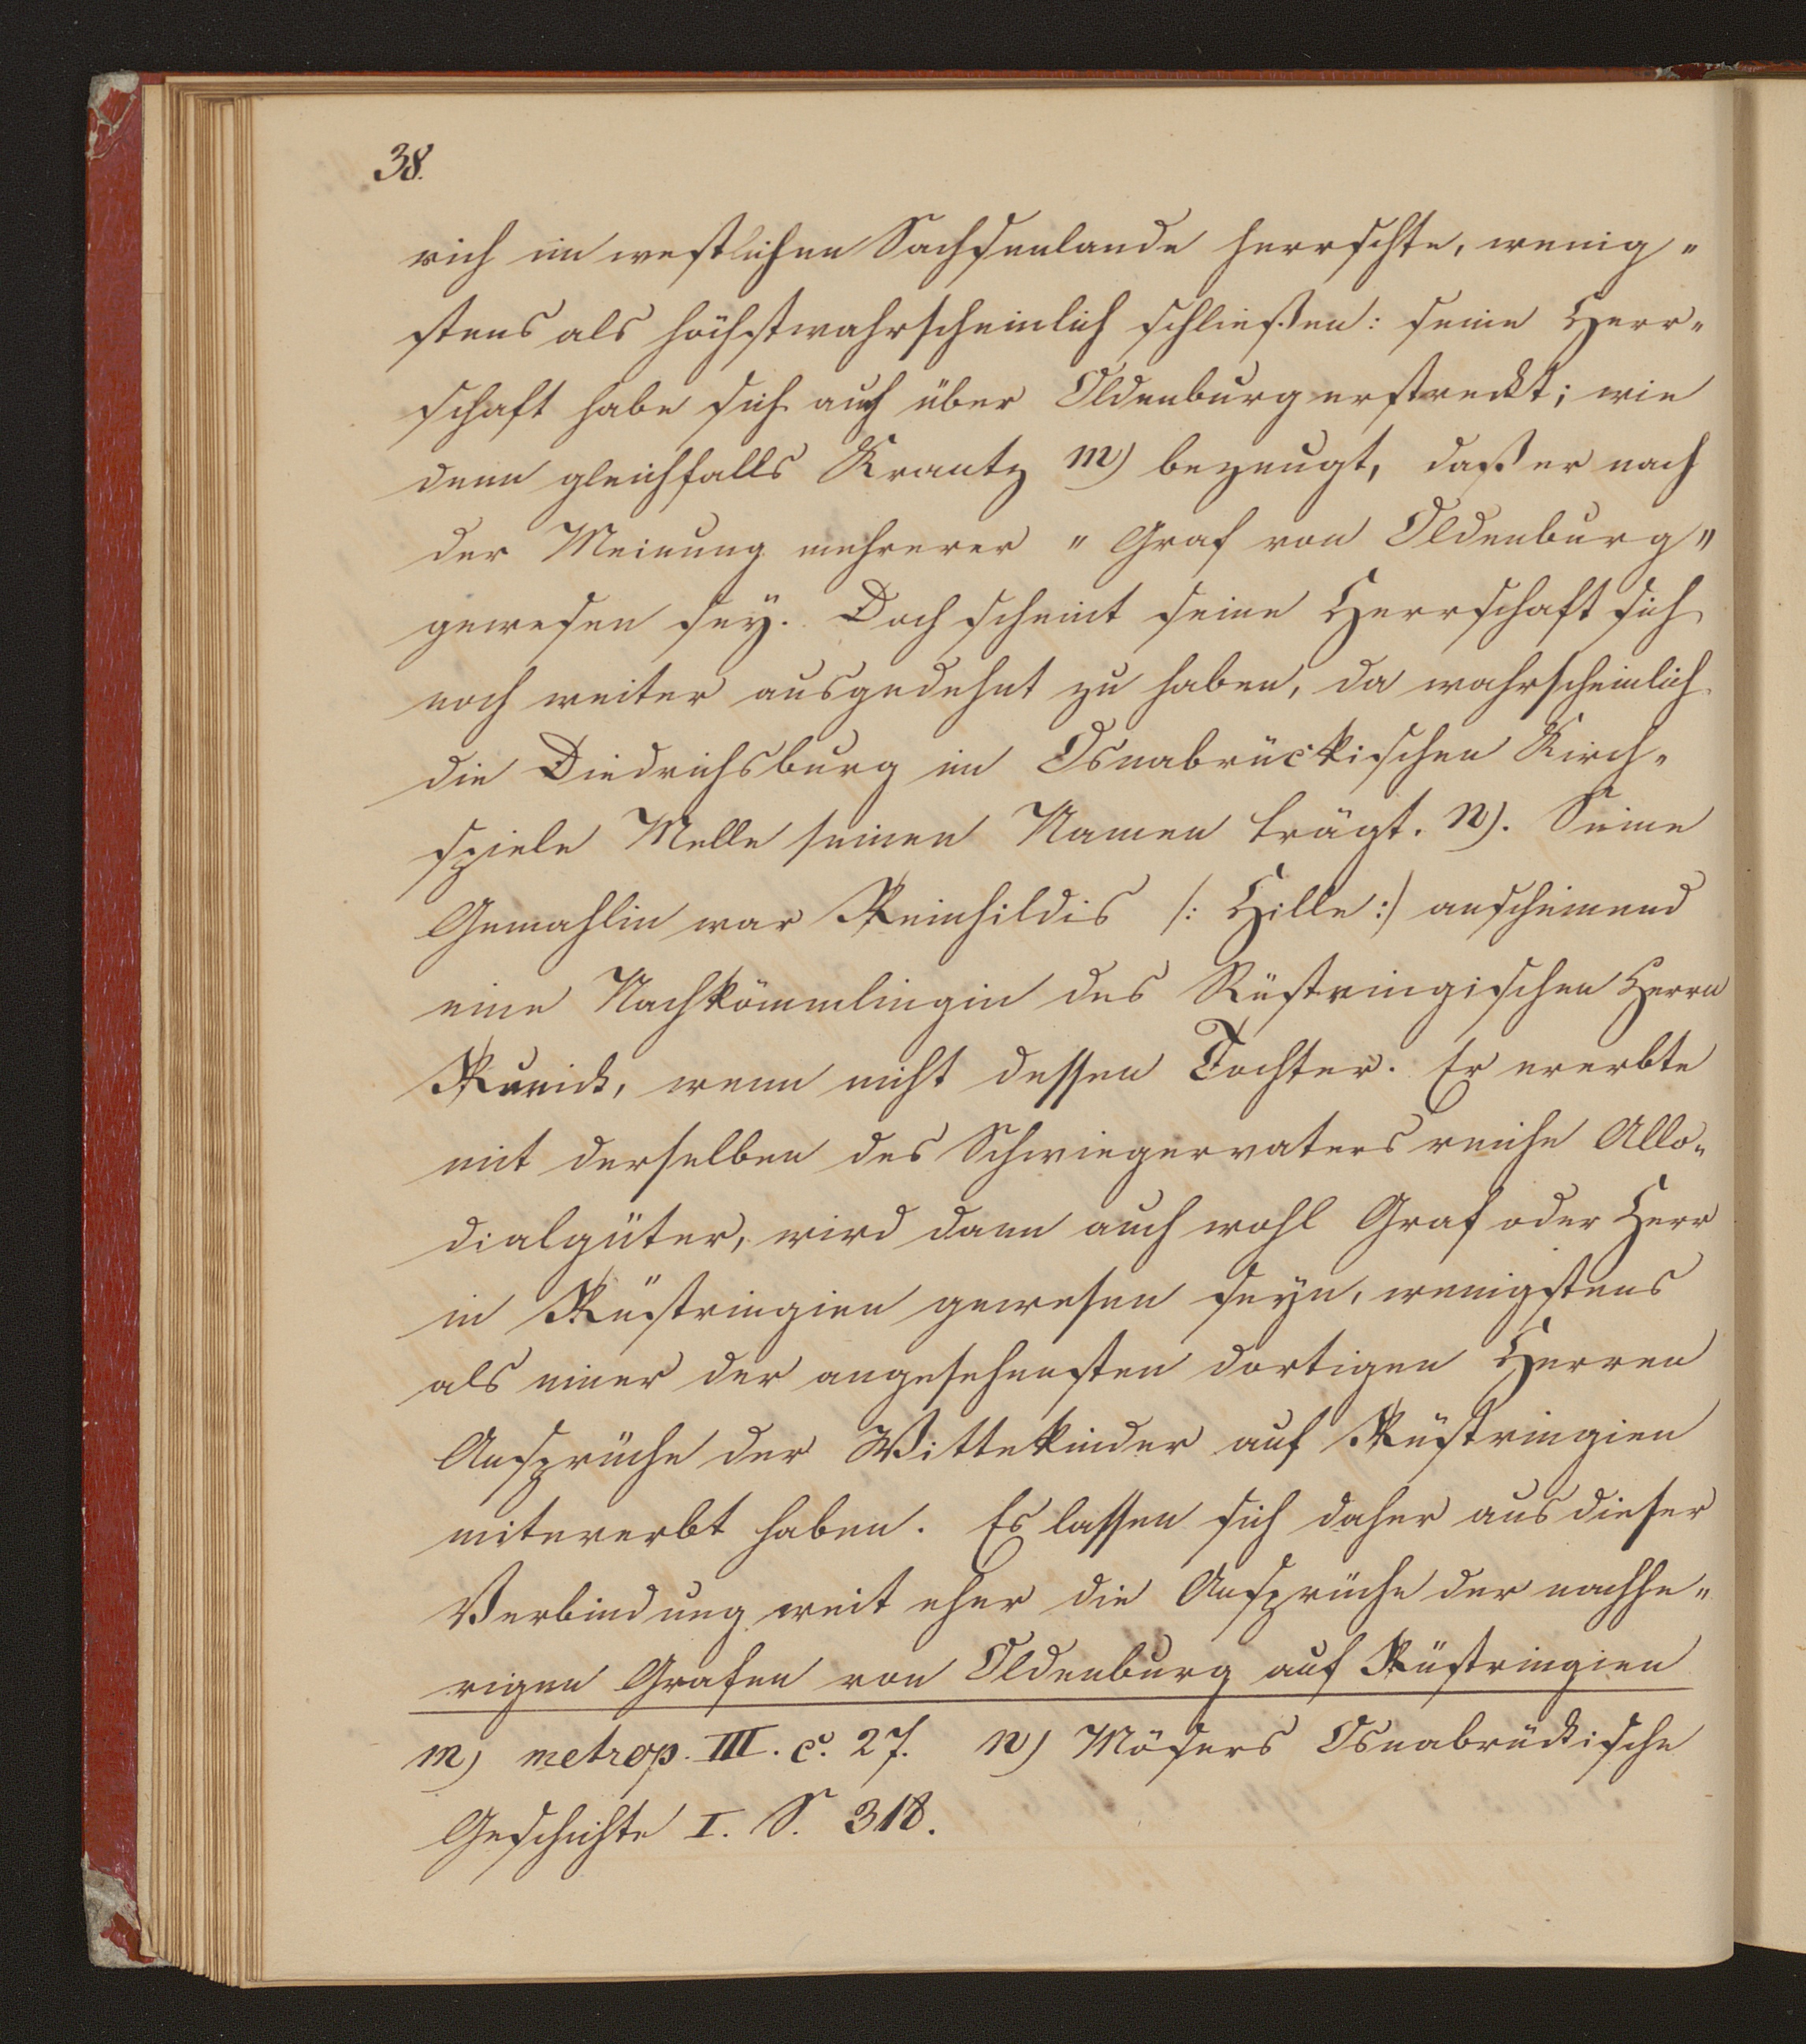 38.
rich im westlichen Sachsenlande herrschte, wenig=
stens als höchstwahrscheinlich schließen: seine Herr=
schaft habe sich auch über Oldenburg erstreckt; wie
denn gleichfalls Krantz m) bezeugt, daß er nach
der Meinung mehrerer "Graf von Oldenburg"
gewesen sey. Doch scheint seine Herrschaft sich
noch weiter ausgedehnt zu haben, da wahrscheinlich
die Diedrichsburg im Osnabrückischen Kirch=
spiele Melle seinen Namen trägt. n). Seine
Gemahlin war Reinhildis /: Hille :/ anscheinend
eine Nachkömmlingin des Rüstringischen Herrn
Rurick, wenn nicht dessen Tochter. Er ererbte
mit derselben des Schwiegervaters reiche Allo=
dialgüter, wird dann auch wohl Graf oder Herr
in Rüstringien gewesen seyn, wenigstens
als einer der angesehensten dortigen Herren
Ansprüche der Wittekinder auf Rüstringien
mitererbt haben. Es lassen sich daher aus dieser
Verbindung weit eher die Ansprüche der nachhe=
rigen Grafen von Oldenburg auf Rüstringien
m) metrop. III. c. 27. n) Mösers Osnabrückische
Geschichte I. S. 318.